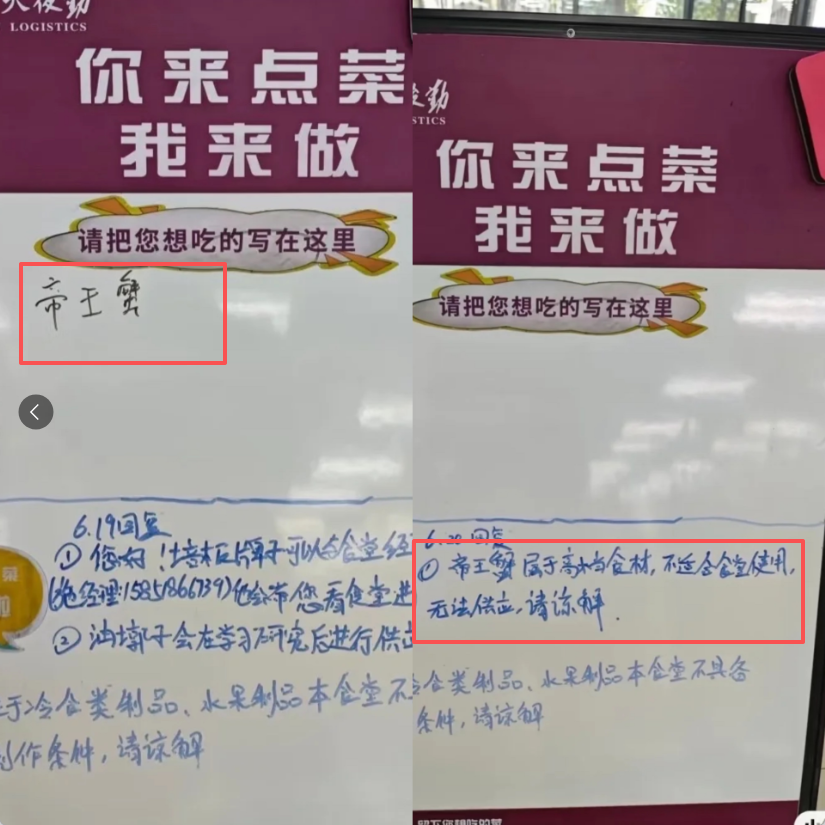 LOGISTICS
你来点菜
我来做
请把您想吃的写在这里
帝王蟹
6.19回复
①您好!培根牌子可以与食堂经
经理:15851866739)他会带您看食堂进
②油墩子会在学习研究后进行供应
于冷食类制品、水果制品本食堂不
制作条件,请谅解
菜
勤
STICS
你来点菜
我来做
请把您想吃的写在这里
回复
①帝王蟹属于高档食材,不适合食堂使用,
无法供应,请谅解.
冷食类制品、水果制品本食堂不具备
条件,请谅解
留下您想吃的菜